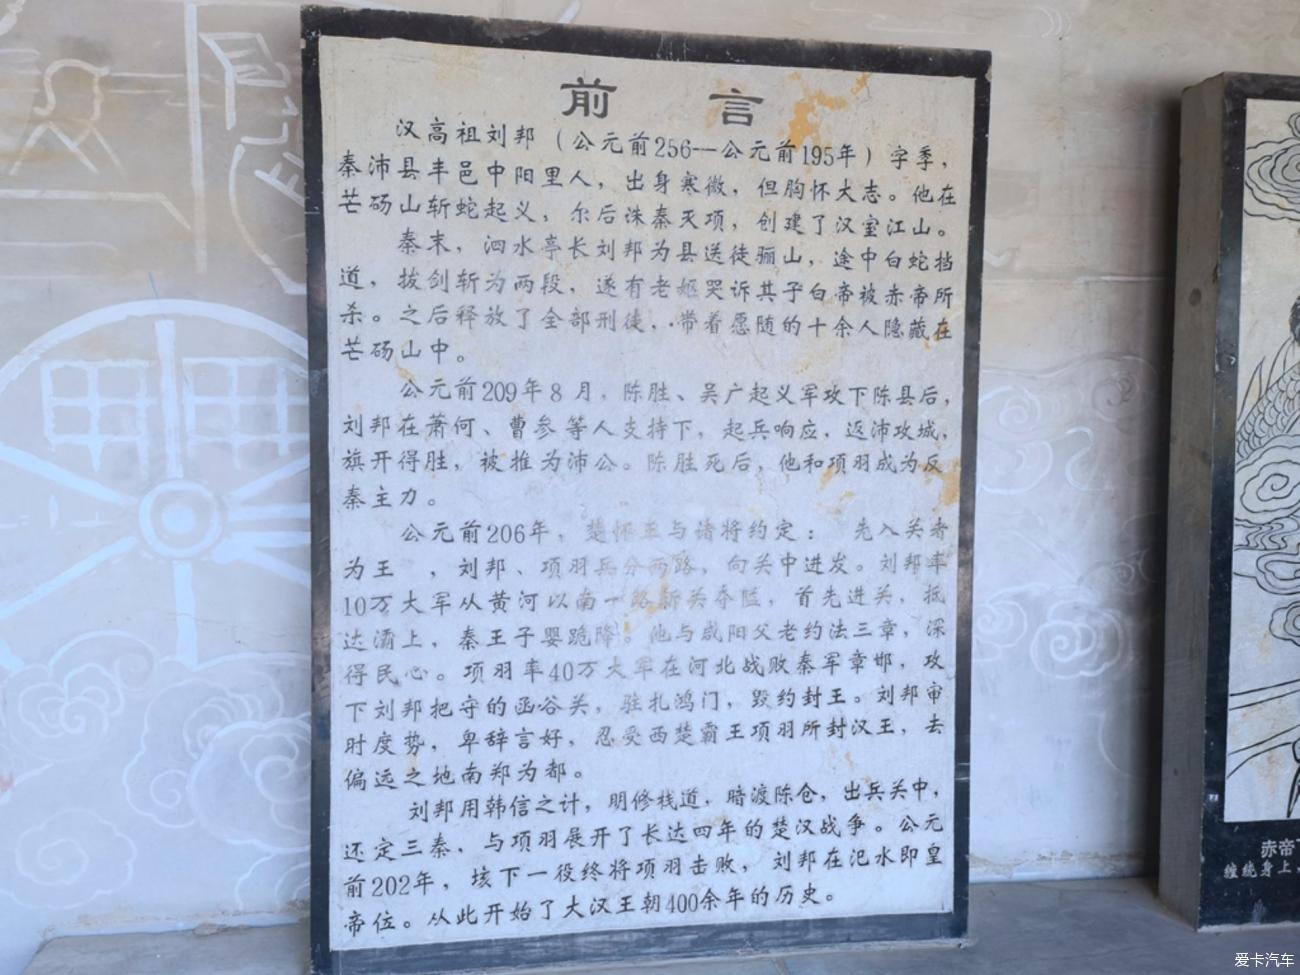 前 言
汉高祖刘邦（公元前256—公元前195年）字季，
秦沛县丰邑中阳里人，出身寒微，但胸怀大志。他在
芒砀山斩蛇起义，尔后诛秦灭项，创建了汉室江山。
秦末，泗水亭长刘邦为县送徒骊山，途中白蛇挡
道，拔剑斩为两段，遂有老妪哭诉其子白帝被赤帝所
杀。之后释放了全部刑徒，带着愿随的十余人隐藏在
芒砀山中。
公元前209年8月，陈胜、吴广起义军攻下陈县后，
刘邦在萧何、曹参等人支持下，起兵响应，返沛攻城，
旗开得胜，被推为沛公。陈胜死后，他和项羽成为反
秦主力。
公元前206年，楚怀王与诸将约定： 先入关者
为王 ，刘邦、项羽兵分两路，向关中进发。刘邦率
10万大军从黄河以南一路斩关夺隘，首先进关，抵
达灞上，秦王子婴跪降。他与咸阳父老约法三章，深
得民心。项羽率40万大军在河北战败秦军章邯，攻
下刘邦把守的函谷关，驻扎鸿门，毁约封王。刘邦审
时度势，卑辞言好，忍受西楚霸王项羽所封汉王，去
偏远之地南郑为都。
刘邦用韩信之计，明修栈道，暗渡陈仓，出兵关中，
还定三秦，与项羽展开了长达四年的楚汉战争。公元
前202年，垓下一役终将项羽击败，刘邦在汜水即皇
帝位。从此开始了大汉王朝400余年的历史。
赤帝
缠绕身上，
爱卡汽车